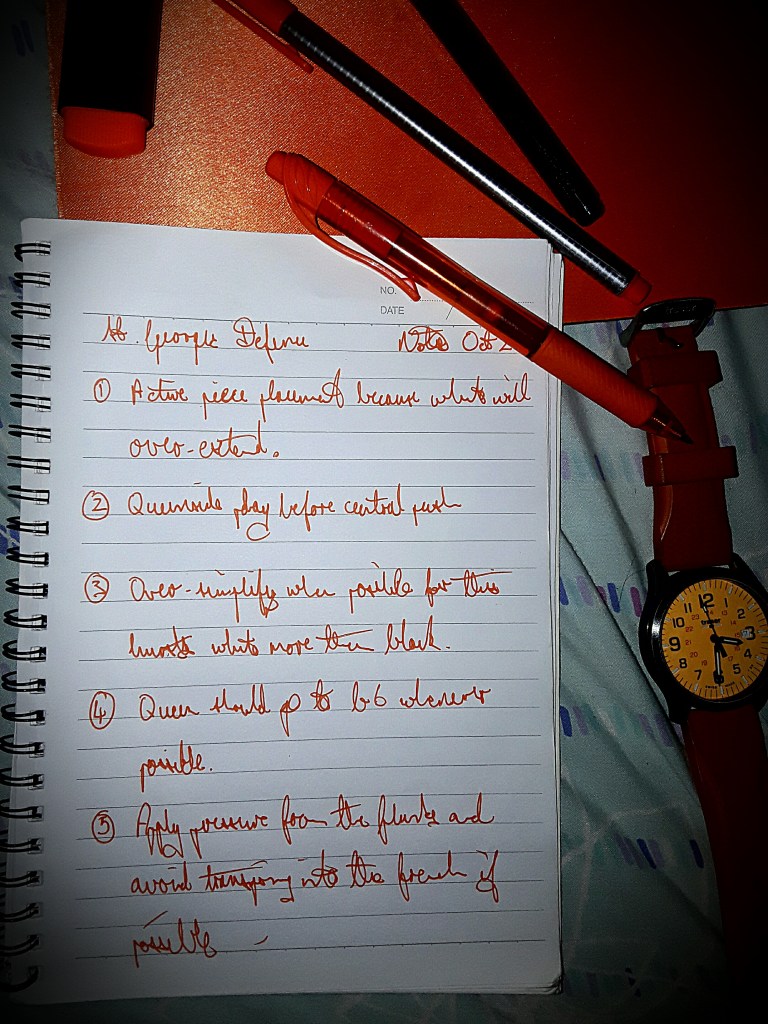 NO.
DATE /
St. George Defence Notes Oct 2
① Active piece placement because white will
over-extend.
② Queenside play before central push
③ Over-simplify when possible for this
hurts white more than black.
④ Queen should go to b6 whenever
possible.
⑤ Apply pressure from the flanks and
avoid transposing into the french if
possible
12
1
2
3
4
5
6
7
8
9
10
11